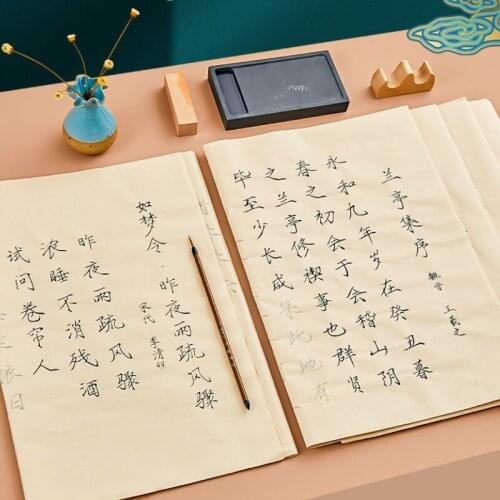 兰亭集序
魏晋 王羲之
永和九年岁在癸丑暮
春之初会于会稽山阴
之兰亭修禊事也群贤
毕至少长咸集此地有
如梦令·昨夜雨疏风骤
宋代 李清照
昨夜雨疏风骤
浓睡不消残酒
试问卷帘人